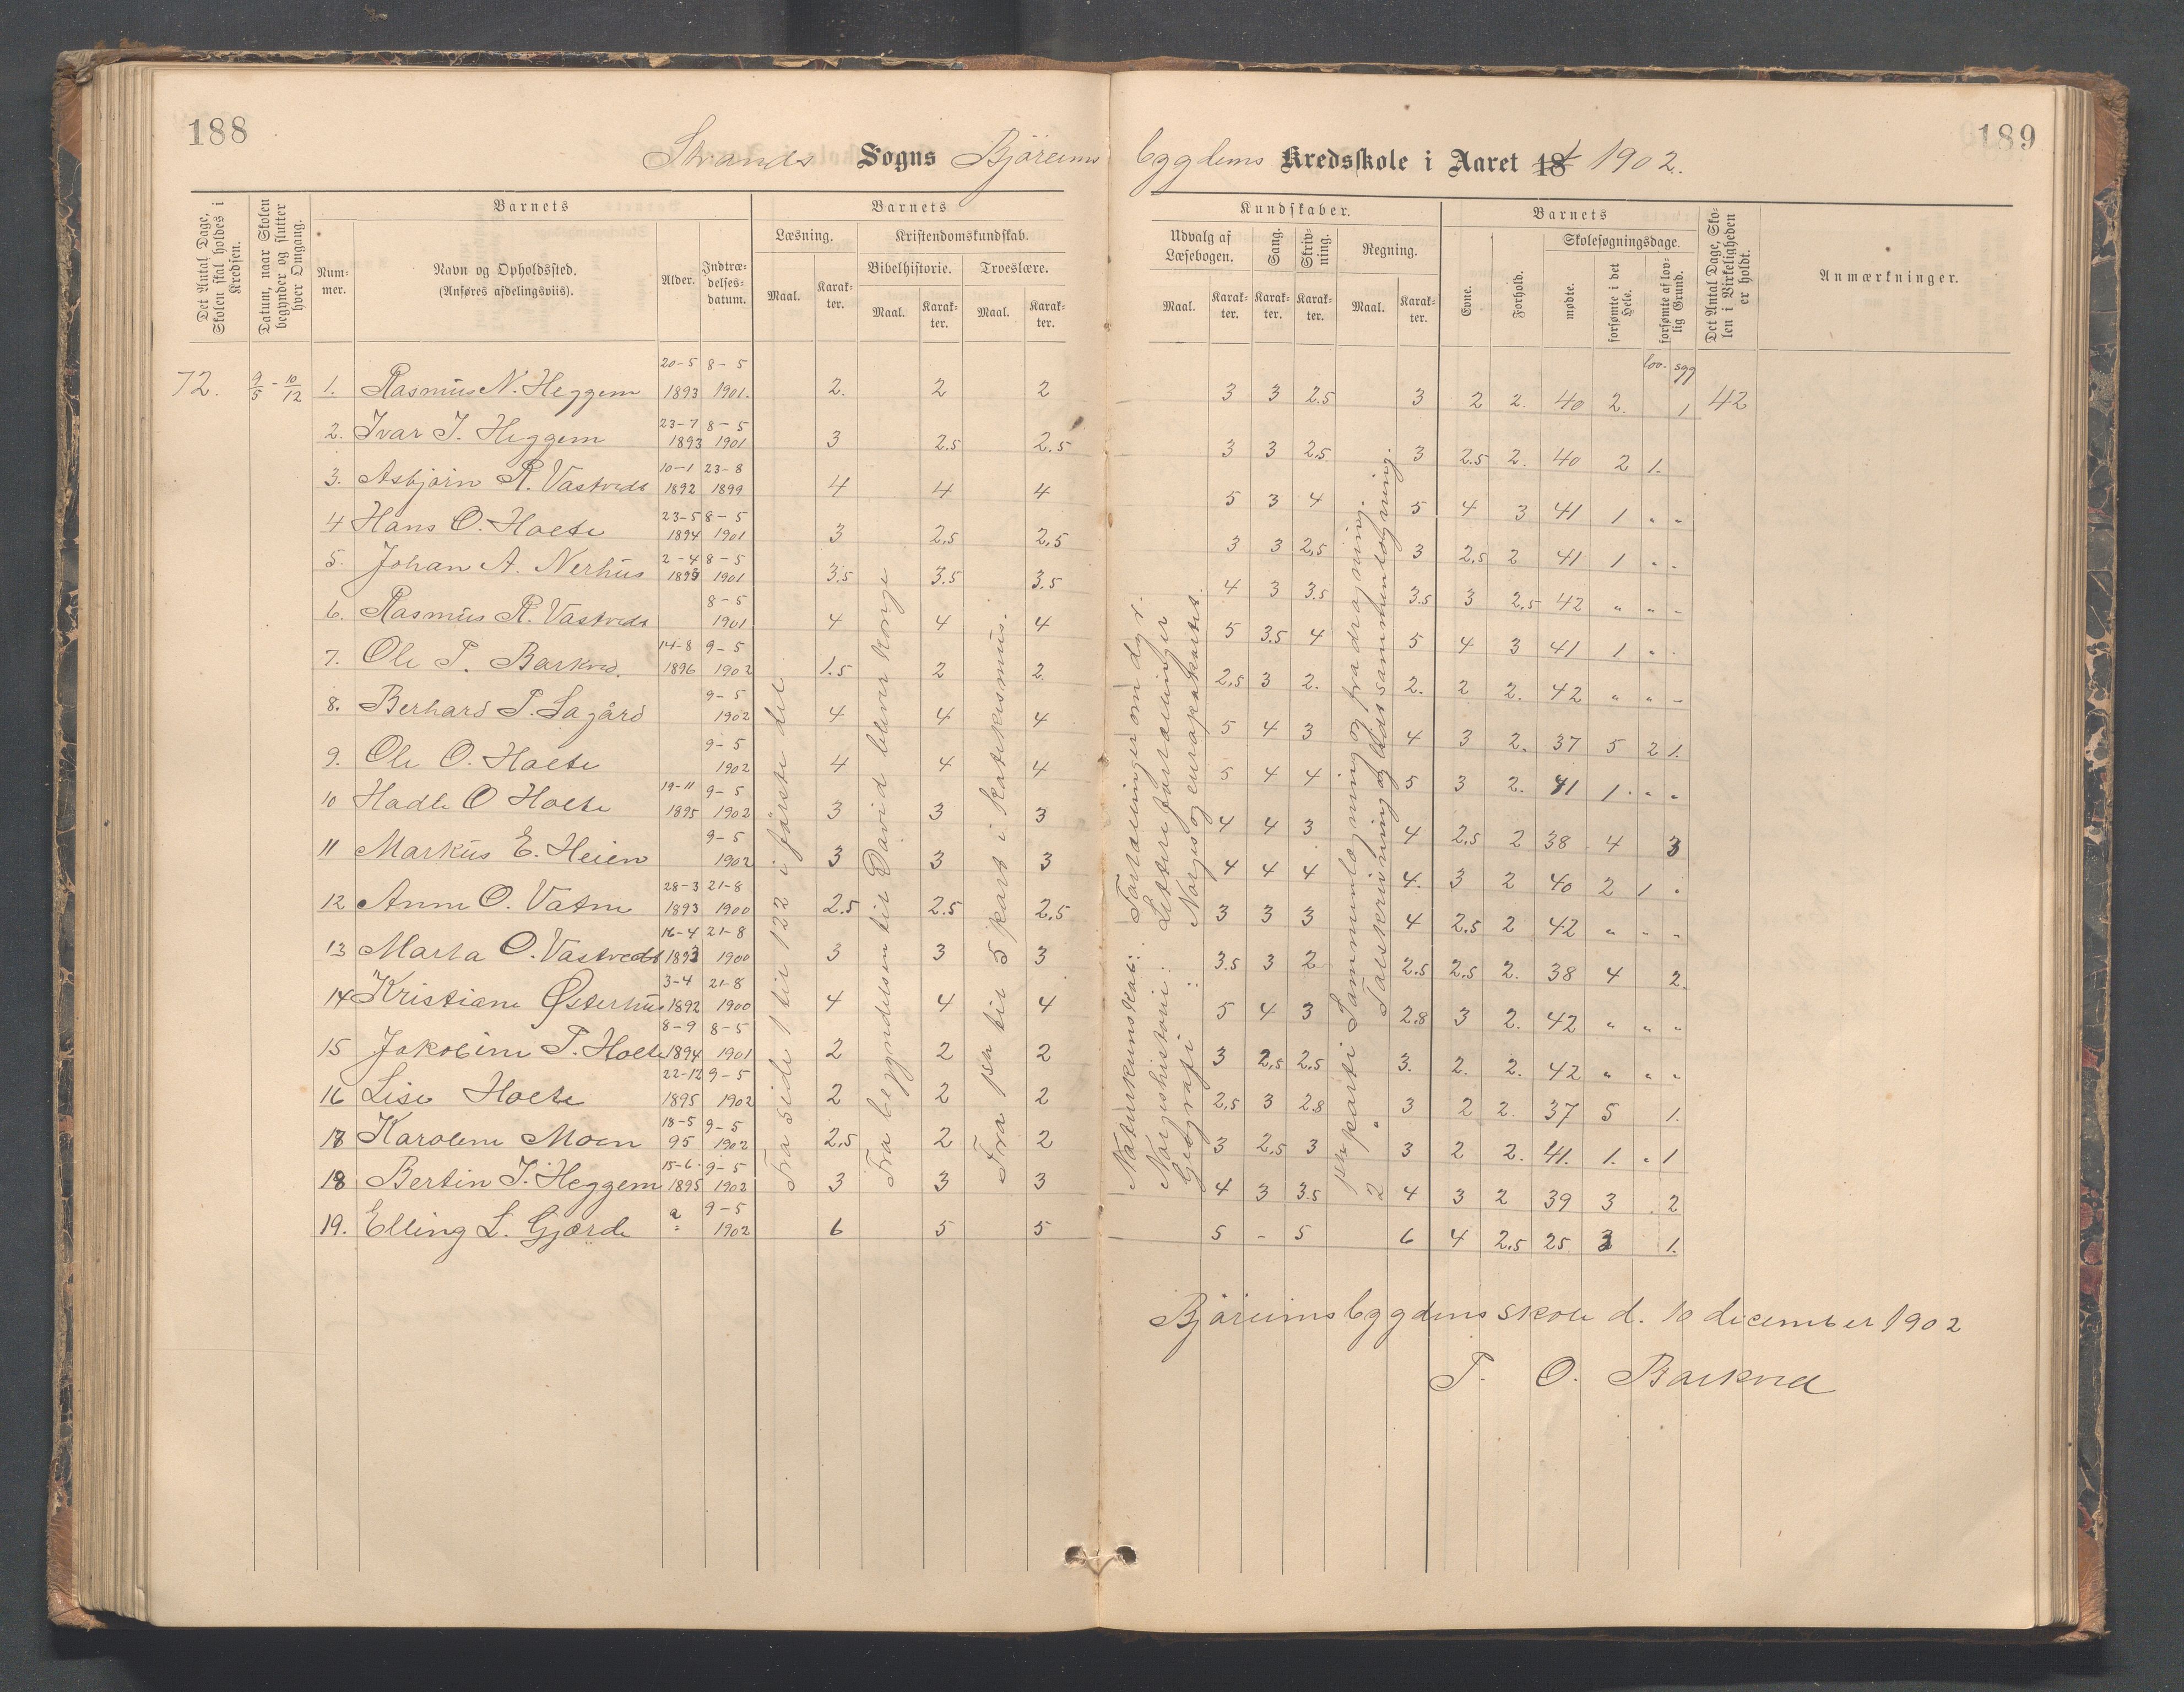 188
189
Strands Sogns Björeims bygdens Kredsskole i Aaret 18 1902.
Det Antal Dage, Skolen skal holdes i Kredsen.
Datum, naar Skolen begynder og slutter hver Omgang.
Barnets
Num-mer.
Navn og Opholdssted.
(Anføres afdelingsviis).
Alder.
Indtræ-delses-datum.
Barnets
Læsning.
Maal.
Karak-ter.
Kristendomskundskab.
Bibelhistorie.
Maal.
Karak-ter.
Troeslære.
Maal.
Karak-ter.
Kundskaber.
Udvalg af Læsebogen.
Maal.
Karak-ter.
Sang.
Karak-ter.
Skriv-ning.
Karak-ter.
Regning.
Maal.
Karak-ter.
Barnets
Evne.
Forhold.
Skolesøgningsdage.
mødte.
forsømte i det Hele.
forsømte af lov-lig Grund.
Det Antal Dage, Sko-len i Virkeligheden er holdt.
Anmærkninger.
lov. syg
72. 9/5 - 10/12 1. Rasmus N. Heggem 20-5 1893 8-5 1901. 2. 2 2 3 3 2.5 3 2 2. 40 2. 1 42
2. Ivar I. Heggem 23-7 1893 8-5 1901 3 2.5 2.5 3 3 2.5 3 2.5 2. 40 2 1.
3. Asbjörn R. Vastveds 10-1 1892 23-8 1899 4 4 4 5 3 4 5 4 3 41 1 " "
4 Hans O. Holte 23-5 1894 8-5 1901 3 2.5 2.5 3 3 2.5 3 2.5 2 41 1 " "
5. Johan A. Nerhus 2-4 1893 8-5 1901 3.5 3.5 3.5 4 3 3.5 3.5 3 2.5 42 " " "
6. Rasmus R. Vastveds 8-5 1901 4 4 4 5 3.5 4 5 4 3 41 1 " "
7. Ole T. Barkved. 14-8 1896 9-5 1902 1.5 2 2. 2.5 3 2. 2. 2 2. 42 " " "
8. Berhard P. Lagård 9-5 1902 4 4 4 5 4 3 4 3 2. 37 5 2 1.
9. Ole O. Holte 9-5 1902 4 4 4 5 4 4 5 3 2. 41 1 " "
10 Hadle O Holte 19-11 1895 9-5 1902 3 3 3 4 4 3 4 2.5 2 38 4 3
11 Markus E. Heien 9-5 1902 3 3 3 4 4 4 4. 3 2 40 2 1 "
12 Anne O. Vatne 28-3 1893 21-8 1900 2.5 2.5 2.5 3 3 3 4 2.5 2 42 " " "
13 Marta O. Vastveds 16-4 1893 21-8 1900 3 3 3 3.5 3 2 2.5 2.5 2. 38 4 2.
14 Kristiane Østerhus 3-4 1892 21-8 1900 4 4 4 5 4 3 2.8 3 2. 42 " " "
15 Jakobine T. Holte 8-9 1894 8-5 1901 2 2 2 3 2.5 2.5 3. 2. 2. 42 " " "
16 Lise Holte 22-12 1895 9-5 1902 2 2 2 2.5 3 2.8 3 2 2. 37 5 1.
18 Karoline Moen 18-5 95 9-5 1902 2.5 2 2 3 2.5 3 3 2 2. 41. 1. " 1
18 Bertin I. Heggem 15-6 1895 9-5 1902 3 3 3 4 3 3.5 4 3 2 39 3 2
19. Elling L. Gjærde 9-5 1902 6 5 5 5 - 5 6 4 2.5 25 3 1.
Fra side 1 til 122 i første del
Fra begyndelsen til David bliver konge
Fra pa til 5 part i katekismus.
Naturkunskab: Fortællinger om dyr.
Norgeshistorie: Lettere fortællinger
Geografi: Norges og europakartet.
1ste parti Sammenlægning og fradragning.
2 " Talskrivning og lidt sammenlægning.
Björeimsbygdens skole d. 10 december 1902
T. O. Barkved